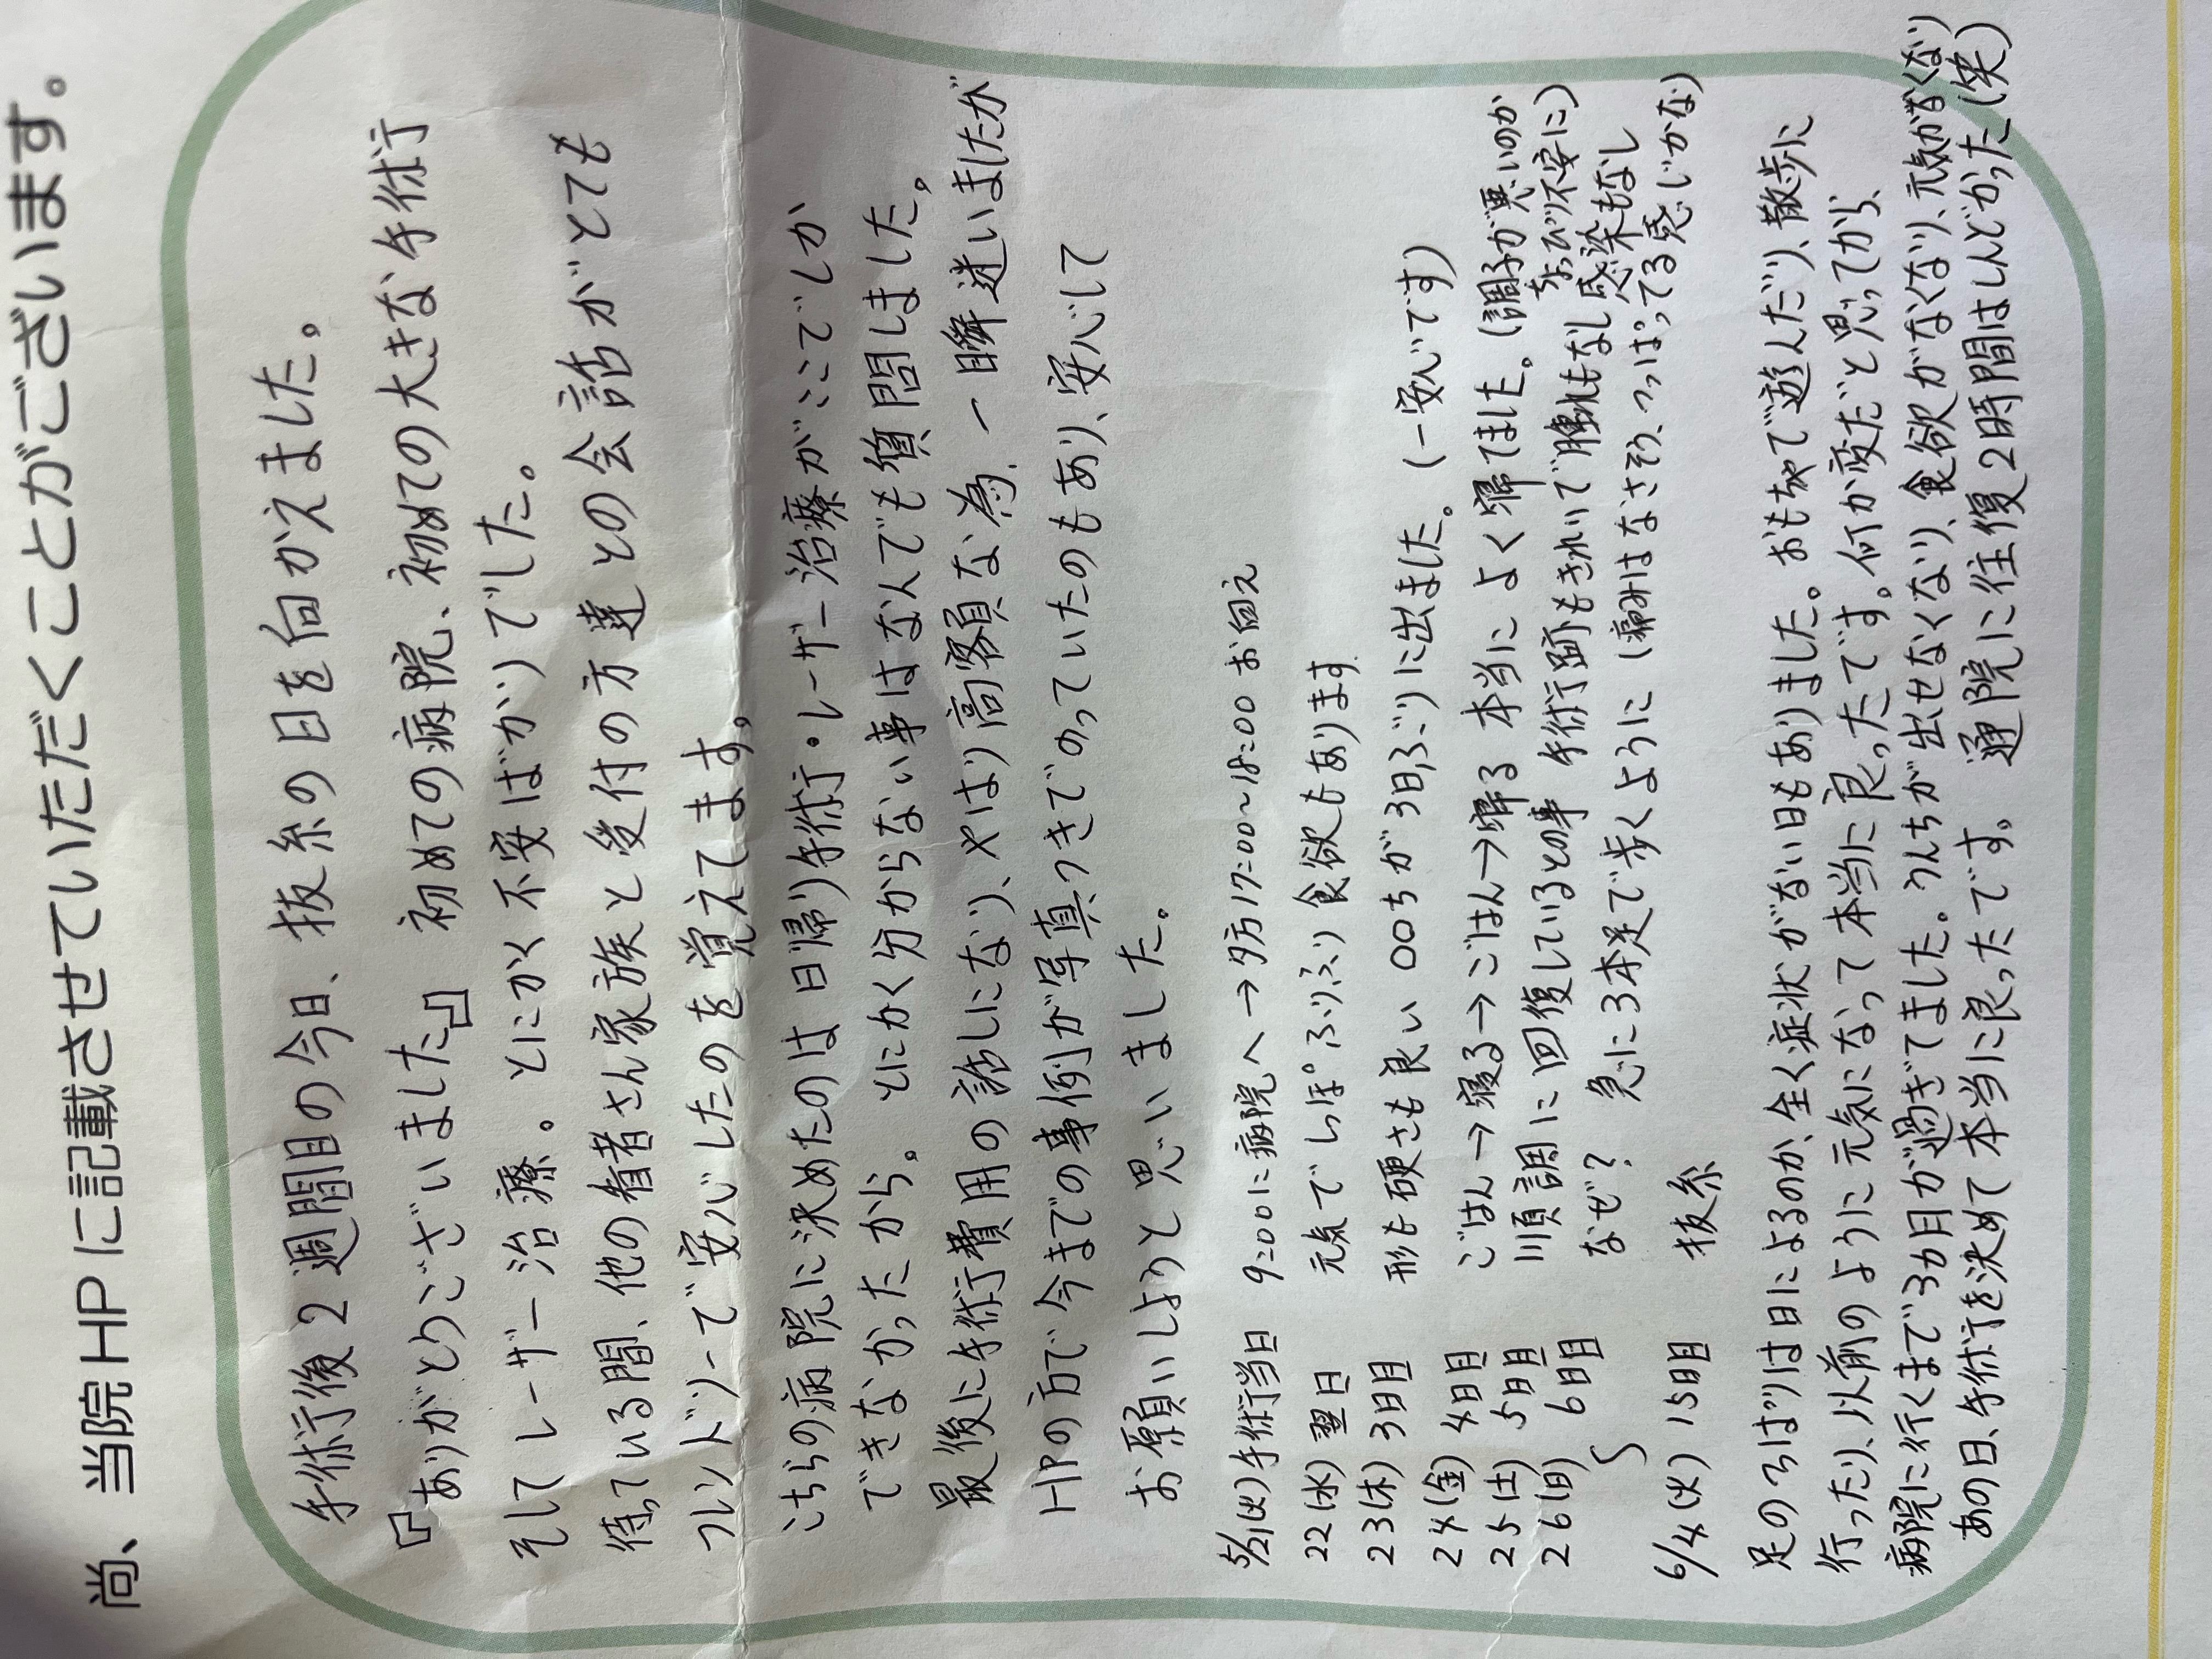 尚、当院HPに記載させていただくことがございます。
手術後2週間目の今日、抜糸の日を向かえました。
『ありがとうございました』 初めての病院、初めての大きな手術
そしてレーザー治療。とにかく不安ばかりでした。
待っている間、他の患者さん家族と受付の方達との会話がとても
フレンドリーで安心したのを覚えてます。
こちらの病院に決めたのは日帰り手術・レーザー治療がここでしか
できなかったから。とにかく分からない事はなんでも質問しました。
最後に手術費用の話しになり、やはり高額な為、一瞬迷いましたが
HPの方で今までの事例が写真つきでのっていたのもあり、安心して
お願いしようと思いました。
5/21(火)手術当日 9:00に病院へ→夕方17:00~18:00 お向え
22(水) 翌日 元気でしっぽふりふり 食欲もあります
23(木) 3日目 形も硬さも良い〇〇ちが3日ぶりに出ました。(一安心です)
24(金) 4日目 ごはん→寝る→ごはん→寝る 本当によく寝てました。(調子が悪いのかちょっぴり不安に)
25(土) 5日目 順調に回復しているとの事 手術跡もきれいで腫れもなし感染もなし
26(日) 6日目 なぜ? 急に3本足で歩くように(痛みはなさそう、つっぱってる感じかな)
〜
6/4(火) 15日目 抜糸
足のつっぱりは日によるのか、全く症状がない日もありました。おもちゃで遊んだり、散歩に
行ったり、以前のように元気になって本当に良ったです。何か変だと思ってから、
病院に行くまで3カ月が過ぎてました。うんちが出せなくなり、食欲がなくなり、元気がなくなり
あの日、手術を決めて本当に良ったです。 通院に往復2時間はしんどかった(笑)